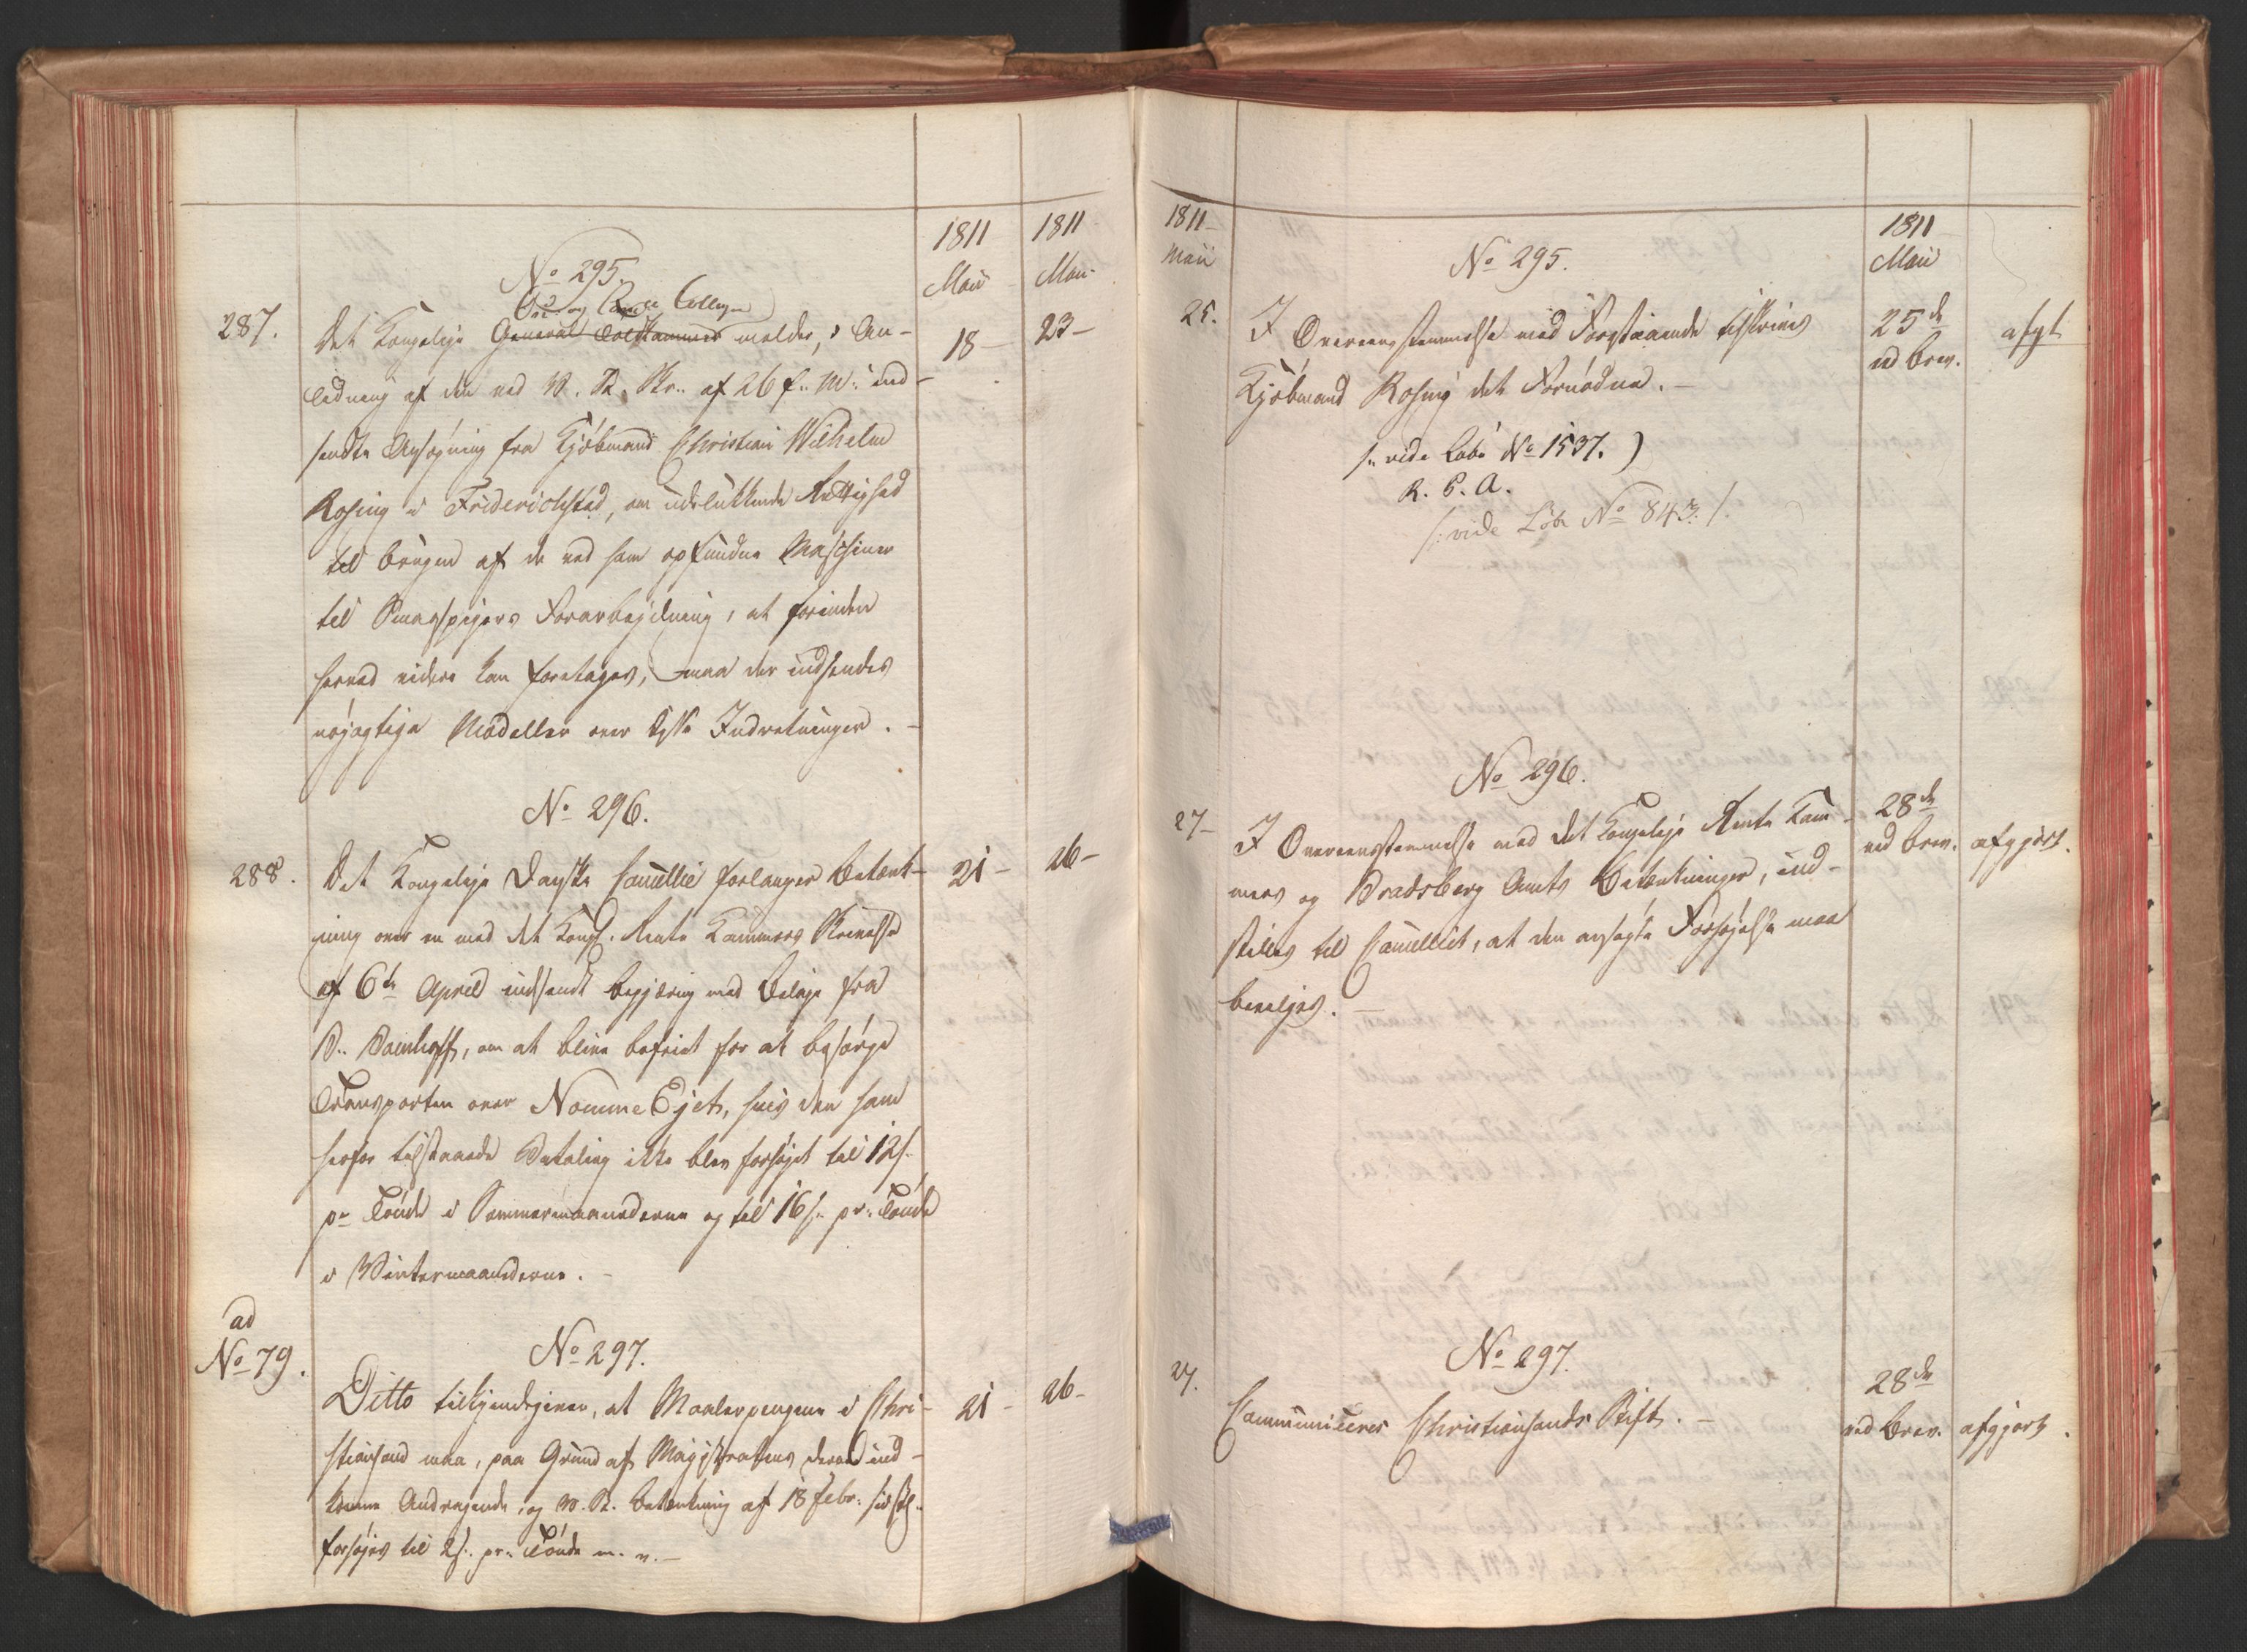 1811
Maii
1811
Maii
No 295.
Oec og Com. Collegiu
287.
Det Kongelige General Toldkammer melder, i An-
18 –
23 –
ledning af den ved V. R. Skr. af 26 f. M. ind-
sendte Ansøgning fra Kjøbmand Christian Wilhelm
Rosing i Friderichstad, om udelukkende Rettighed
til Brugen af de ved ham opfundne Maschiner
til Smaaspigers Forarbejdning, at forinden
herved videre kan foretages, maa der indsendes
nøjagtige Modeller over disse Indretninger. –
No 296.
288.
Det Kongelige Danske Cancellie forlanger Betænk-
21 –
26 –
ning over en med det Kongl. Rente Kammers Skrivelse
af 6te April indsendt begjæring med Bilage fra
om at blive befriet for at besørge
Transporten over Nomme Ejet, hvis den ham
herfor tilstaaede Betaling ikke blev forhøjet til 12 s.
pr Tønde i Sommermaanederne og til 16 s. pr. Tønde
i Vintermaanederne. –
ad
No 79.
No 297.
Ditto tilkjendegiver, at Maalerpengene i Chri-
21 –
26 –
stiansand maa, paa Grund af Magistratens derom ind-
komne Andragende, og V. R. Betænkning af 18 Febr. sidstl.
forhøjes til 2 s. pr. Tønde m. v. –
1811
Maii
1811
Maii
No 295.
25.
I Overeensstemmelse med Forestaaende tilskrives
25de
ved Brev.
afgt
Kjøbmand Rosing det Fornødne. –
/: vide Løbe No 1537. )
R. P. A.
/: vide Løbe No 843 :/.
No 296.
27 –
I Overeensstemmelse med det Kongelige Rente Kam-
28de
ved Brev.
afgjort.
mers og Bradsberg Amts Betænkninger, ind-
stilles til Cancelliet, at den ansøgte Forhøjelse maa
bevilges. –
No 297.
27.
Communiceres Christiansands Stift. –
28de
ved Brev.
afgjort.